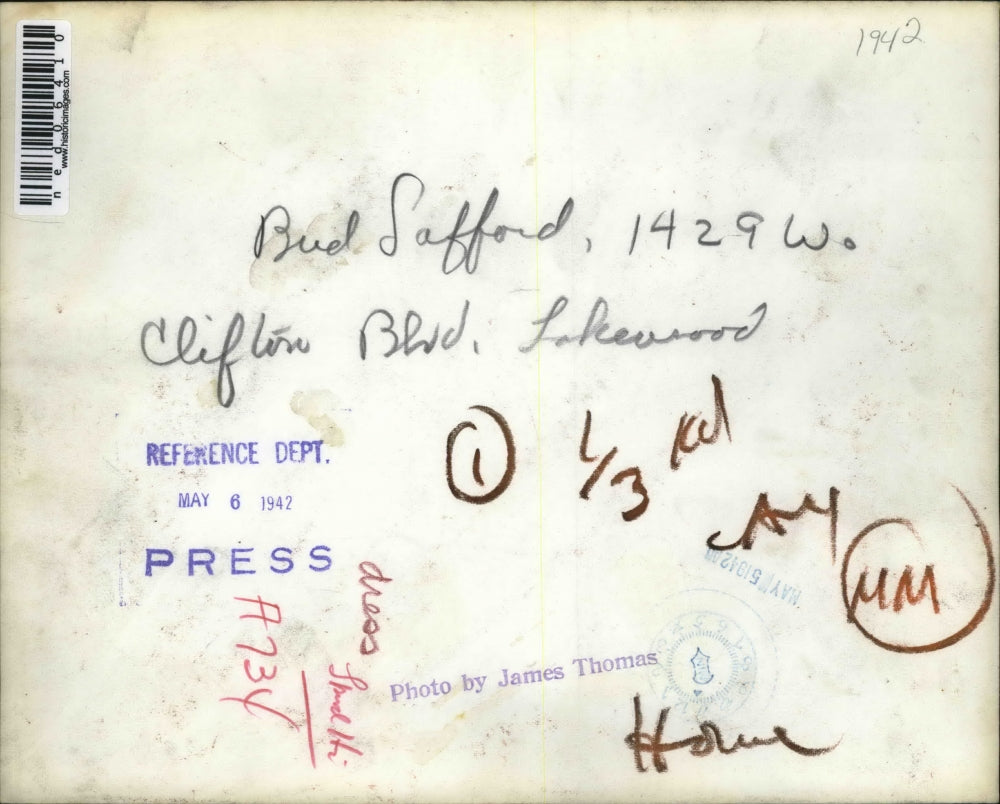 1942
ned06410
www.historicimages.com
Bud Safford, 1429 W.
Clifton Blvd. Lakewood
REFERENCE DEPT.
MAY 6 1942
PRESS
1
1/3
MM
MAY 5 1942
dress
Photo by James Thomas
Home